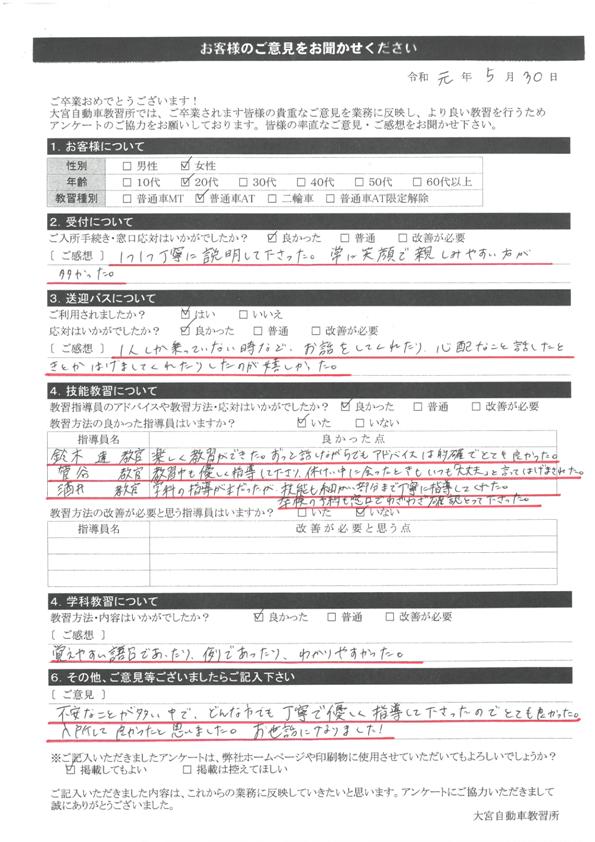 お客様のご意見をお聞かせください
令和 元 年 5 月 30 日
ご卒業おめでとうございます!
大宮自動車教習所では、ご卒業されます皆様の貴重なご意見を業務に反映し、より良い教習を行うため
アンケートのご協力をお願いしております。皆様の率直なご意見・ご感想をお聞かせ下さい。
1. お客様について
性別 □ 男性 ☑ 女性
年齢 □ 10代 ☑ 20代 □ 30代 □ 40代 □ 50代 □ 60代以上
教習種別 □ 普通車MT ☑ 普通車AT □ 二輪車 □ 普通車AT限定解除
2. 受付について
ご入所手続き・窓口応対はいかがでしたか? ☑ 良かった □ 普通 □ 改善が必要
[ ご感想 ] 1つ1つ丁寧に説明して下さった。常に笑顔で親しみやすい方が
多かった。
3. 送迎バスについて
ご利用されましたか? ☑ はい □ いいえ
応対はいかがでしたか? ☑ 良かった □ 普通 □ 改善が必要
[ ご感想 ] 1人しか乗っていない時など、お話をしてくれたり、心配なこと話したと
きとかはげましてくれたりしたのが嬉しかった。
4. 技能教習について
教習指導員のアドバイスや教習方法・応対はいかがでしたか? ☑ 良かった □ 普通 □ 改善が必要
教習方法の良かった指導員はいますか? ☑ いた □ いない
指導員名 良かった点
鈴木 教官 楽しく教習ができた。ずっと話しながらでもアドバイスは的確でとても良かった。
菅谷 教官 教習中も優しく指導して下さり、休けい中に会ったときも いつも「大丈夫」と言ってはげまされた。
酒井 教官 学科の指導がまだったが、技能も細かい部分まで丁寧に指導してくれた。
の予約も窓口でわざわざ確認とって下さった。
教習方法の改善が必要と思う指導員はいますか? □ いた ☑ いない
指導員名 改善が必要と思う点
4. 学科教習について
教習方法・内容はいかがでしたか? ☑ 良かった □ 普通 □ 改善が必要
[ ご感想 ]
覚えやすい語呂であったり、例りであったり、わかりやすかった。
6. その他、ご意見等ございましたらご記入下さい
[ ご意見 ]
不安なことが多い中で、どんな方でも丁寧で優しく指導して下さったのでとても良かった。
入所して良かったと思いました。お世話になりました!
※ご記入いただきましたアンケートは、弊社ホームページや印刷物に使用させていただいてもよろしいでしょうか?
☑ 掲載してもよい □ 掲載は控えてほしい
ご記入いただきました内容は、これからの業務に反映していきたいと思います。アンケートにご協力いただきまして
誠にありがとうございました。
大宮自動車教習所